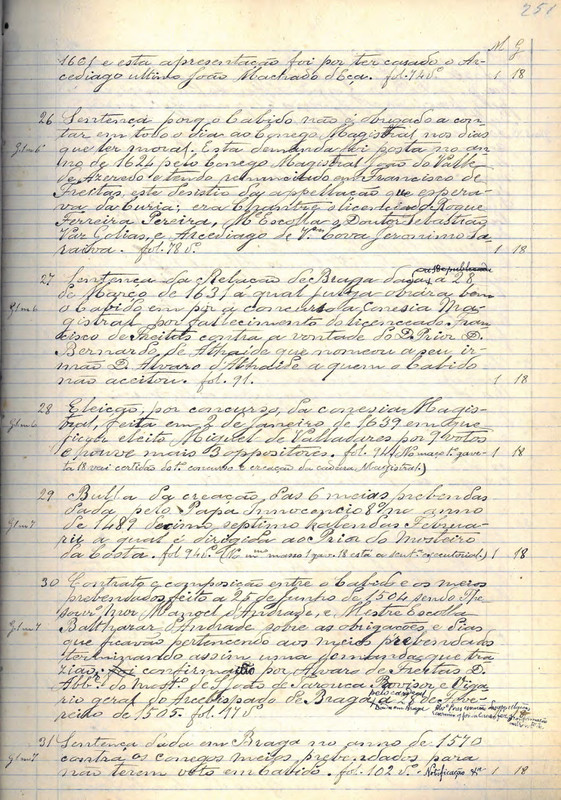 251
M. G.
1601 e esta apresentação foi por ter casado o Ar-
cediago ultimo João Machado d'Eça. fol. 74 vº. 1 18
26 Sentença porq o Cabido não é obrigado a con-
tar em todo o dia ao Conego Magistral nos dias
que ter moral. Esta demanda foi posta no an-
no de 1624 pelo Conego Magistral João do Valle
de Azeredo e tendo renunciado em Francisco de
Freitas, este desistio da appellação que espera-
va da Curia; era Chantre o licenciado Roque
Ferreira Pereira, Mº Eschola o Doutor Sebastião
Vaz Golias, e Arcediago de Vª Cova Jeronimo Sa-
raiva. fol. 78 vº. 1 18
27 Sentença da Relação de Braga dada a 28
de Março de 1631 a qual julga obrára bem
G. 1 m 6 o Cabido em pôr a concurso a Conesia Ma-
gistral por fallecimento do licenceado Fran-
cisco de Freitas contra a vontade do D. Prior D.
Bernardo de Athaide que nomeou a seu ir-
mão D. Alvaro d'Athaide a quem o Cabido
não acceitou. fol. 91. 1 18
28 Eleição, por concurso, da conesia Magis-
tral, feita em 2 de Janeiro de 1639 em que
ficou eleito Miguel de Valladares por 9 votos
e houve mais 3 oppositores. fol. 94 (No maço 1º gave- 1 18
ta 18 vai certidão do 1º concurso e creação da cadeira Magistral.)
29 Bulla da creação das 6 meias prebendas
dada pelo Papa Innocencio 8º no anno
G. 1 m 7 de 1489 decimo septimo kalendas Februa-
rii a qual é dirigida ao Prior do Mosteiro
da Costa. fol 946. (No mmº masso 1 gav. 18 está a sentª executorial.) 1 18
30 Contrato e composição entre o Cabido e os meios
prebendados feito a 25 de Junho de 1504 sendo The-
sourº mor Manoel d'Andrade, e Mestre Eschola
G. 1 m 7 Balthazar d'Andrade sobre as obrigações e dias
que ficavão pertencendo aos meios prebendados
terminando assim uma demanda que tra-
zião; confirmação por Alvaro de Freitas D.
Abbº do Mostº de S. João de Tarouca Provisor e Viga-
rio geral do Arcebispado de Braga, a 28 de Feve-
reiro de 1505. fol. 47 vº. 1 18
31 Sentença dada em Braga no anno de 1570
G. 1 m 7 contra os conegos meios prebendados para
não terem voto em cabido. fol. 102 vº. Notificação &ª 1 18